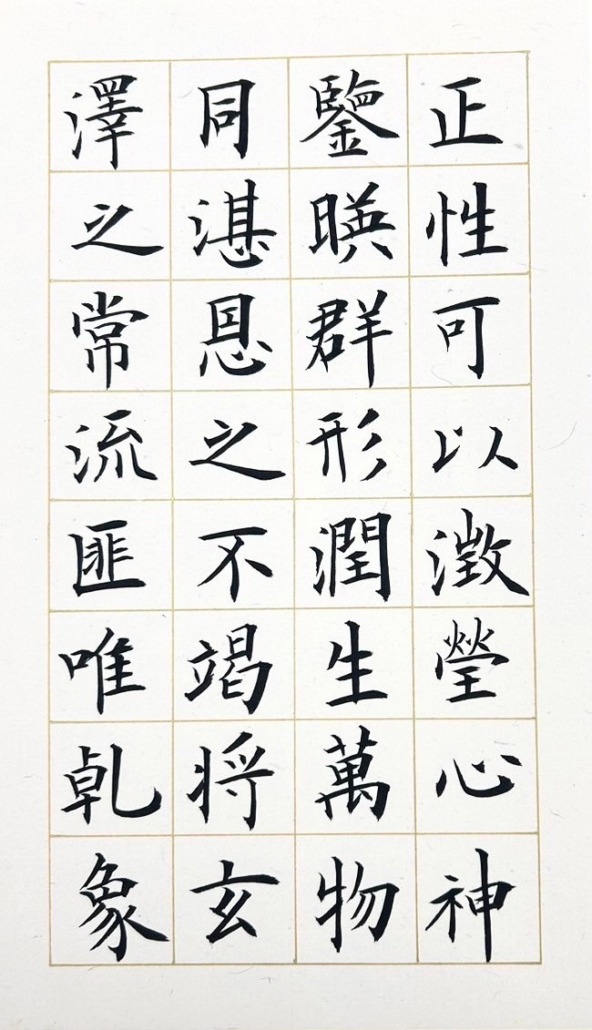 正性可以澂瑩心神
鑒暎群形潤生萬物
同湛恩之不竭將玄
澤之常流匪唯乹象